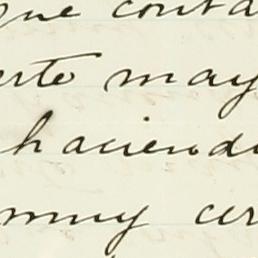 que conta
erto may
haciend
muy cer